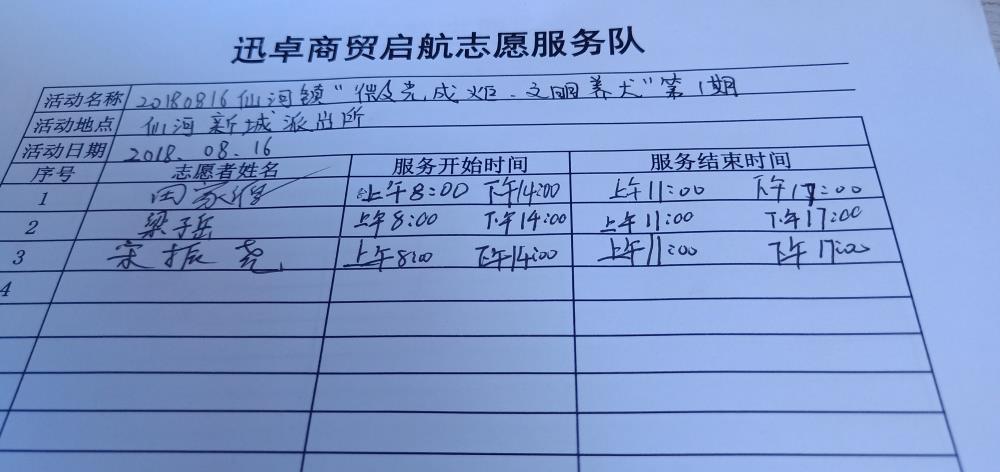 迅卓商贸启航志愿服务队
活动名称 20180816仙河镇“微光成炬·文明养犬”第1期
活动地点 仙河新城派出所
活动日期 2018.08.16
序号 志愿者姓名 服务开始时间 服务结束时间
1 田家 上午8:00 下午14:00 上午11:00 下午17:00
2 梁子岳 上午8:00 下午14:00 上午11:00 下午17:00
3 宋振尧 上午8:00 下午14:00 上午11:00 下午17:00
4